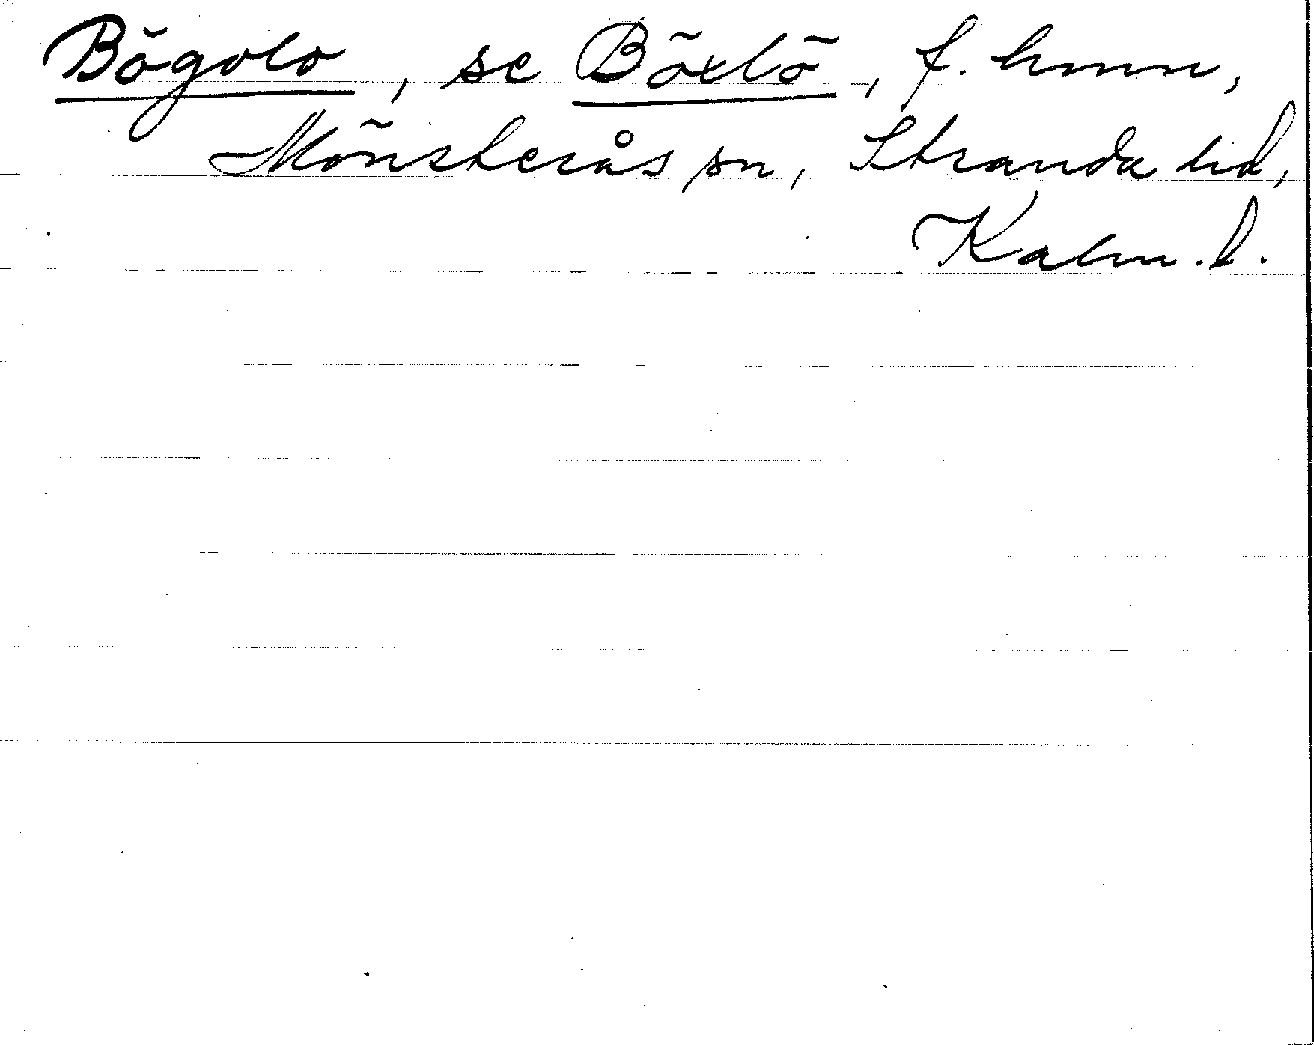 Bögolo, se Böxlö, f. hmn,
Mönsterås sn, Stranda hd,
Kalm. l.